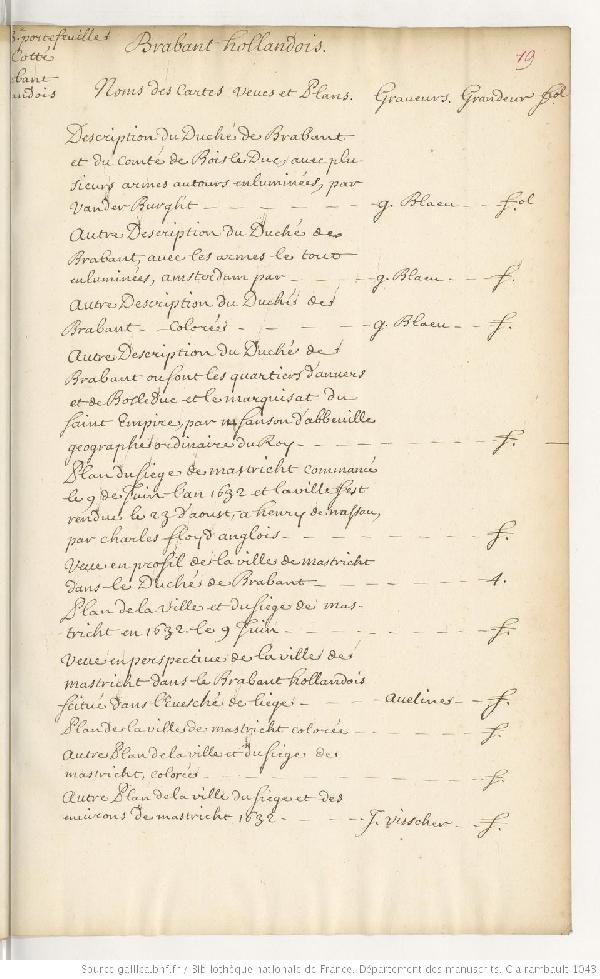 portefeuille
Cotté
Brabant hollandois.
19
Noms des Cartes Veues et Plans. Graveurs. Grandeur fol
Description du Duché de Brabant
et du Comté de Bois le Duc, avec plu
sieurs armes autours enluminées, par
Vander Burght - - - - - g. Blaeu - - fol
Autre Description du Duché de
Brabant, avec les armes le tout
enluminées, amsterdam par - - - g. Blaeu - - f.
Autre Description du Duché de
Brabant - Colorée - - - - g. Blaeu - - f.
Autre Description du Duché de
Brabant ou sont les quartiers d'anvers
et de Bolleduc et le marquisat du
Saint Empire, par m sanson d'abbeuille
geographe ordinaire du Roy - - - - - - f.
Plan du siege de mastricht commancé
le 9 de Juin l'an 1632 et la ville fust
rendue le 23 d'aoust, a henry de nassau,
par charles floyd anglois - - - - - - f.
Veue en profil de la ville de mastricht
dans le Duché de Brabant - - - - - - 4.
Plan de la Ville et du siege de mas-
tricht en 1632 le 9 Juin - - - - - - f.
Veue en perspective de la ville de
mastricht dans le Brabant hollandois
scitué dans l'Evesché de liege - - - Aveline - - f.
Plan de la ville de mastricht colorée - - - - f.
Autre Plan de la ville et du siege de
mastricht, colorée - - - - - - f.
Autre Plan de la ville du siege et des
environs de mastricht 1632 - - - - J. Visscher - - f.
Source gallica.bnf.fr / Bibliothèque nationale de France. Département des manuscrits. Clairambault 1043